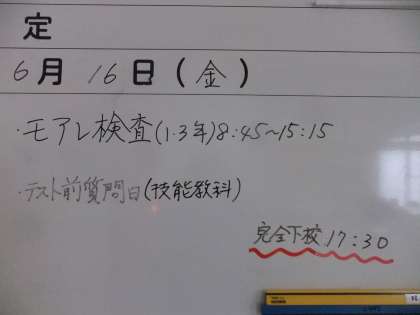 定
6月 16日(金)
・モアレ検査(1・3年)8:45〜15:15
・テスト前質問日(技能教科)
完全下校17:30